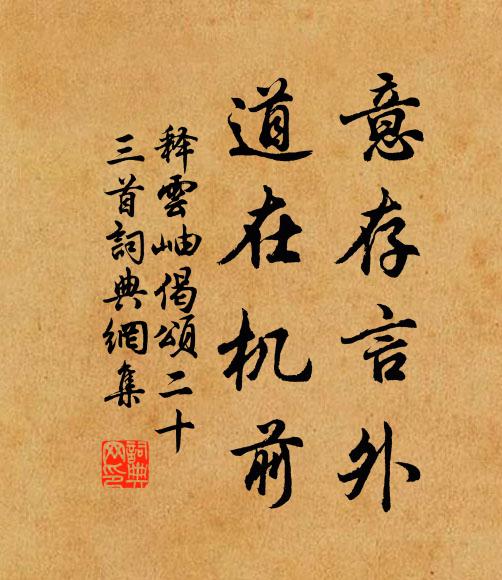 意存言外
道在机前
释雲岫偈頌二十
三首詞典網集
詞典